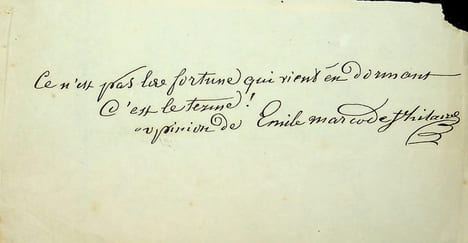 Ce n'est pas la fortune qui vient en dormant
C'est le terme !
opinion de Emile marco de St hilaire